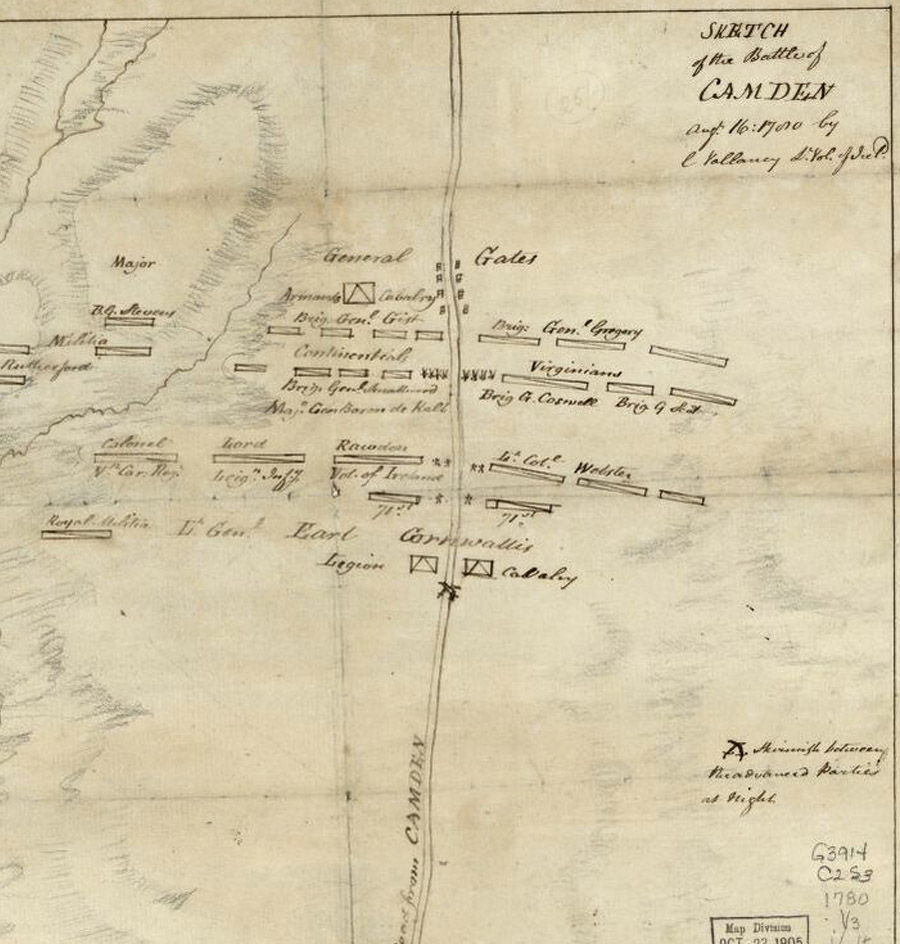 SKETCH
of the Battle of
CAMDEN
Augt. 16: 1780 by
C Vallancey Lt. Vol. of Ireld.
General Gates
Major
Armands Cavalry
B.G. Stevens
Brig. Genl. Gist
Brig: Genl. Gregory
Militia
Rutherford
Continentals
Virginians
Brig. Genl. Smallwood
Brig G. Caswell Brig G
Majr. Gen Baron de Kalb
Colonel Lord Rawdon
Lt. Coll. Webster
Nth. Car. Reg.
Leign. Infy.
Vol. of Ireland
71st. 71st.
Royal Militia
Lt. Genl. Earl Cornwallis
Legion Cavalry
from CAMDEN
Skirmish between
the advanced Parties
at Night.
G3914
C2S3
1780
.V3
Map Division
OCT 23 1905